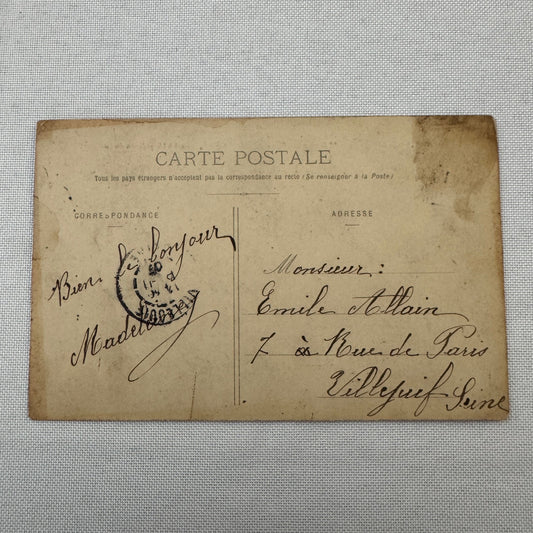 CARTE POSTALE
Tous les pays étrangers n'acceptent pas la correspondance au recto (Se renseigner à la Poste)
CORRESPONDANCE
ADRESSE
Bien le bonjour
Monsieur :
Emile Allain
7 Rue de Paris
Villejuif Seine